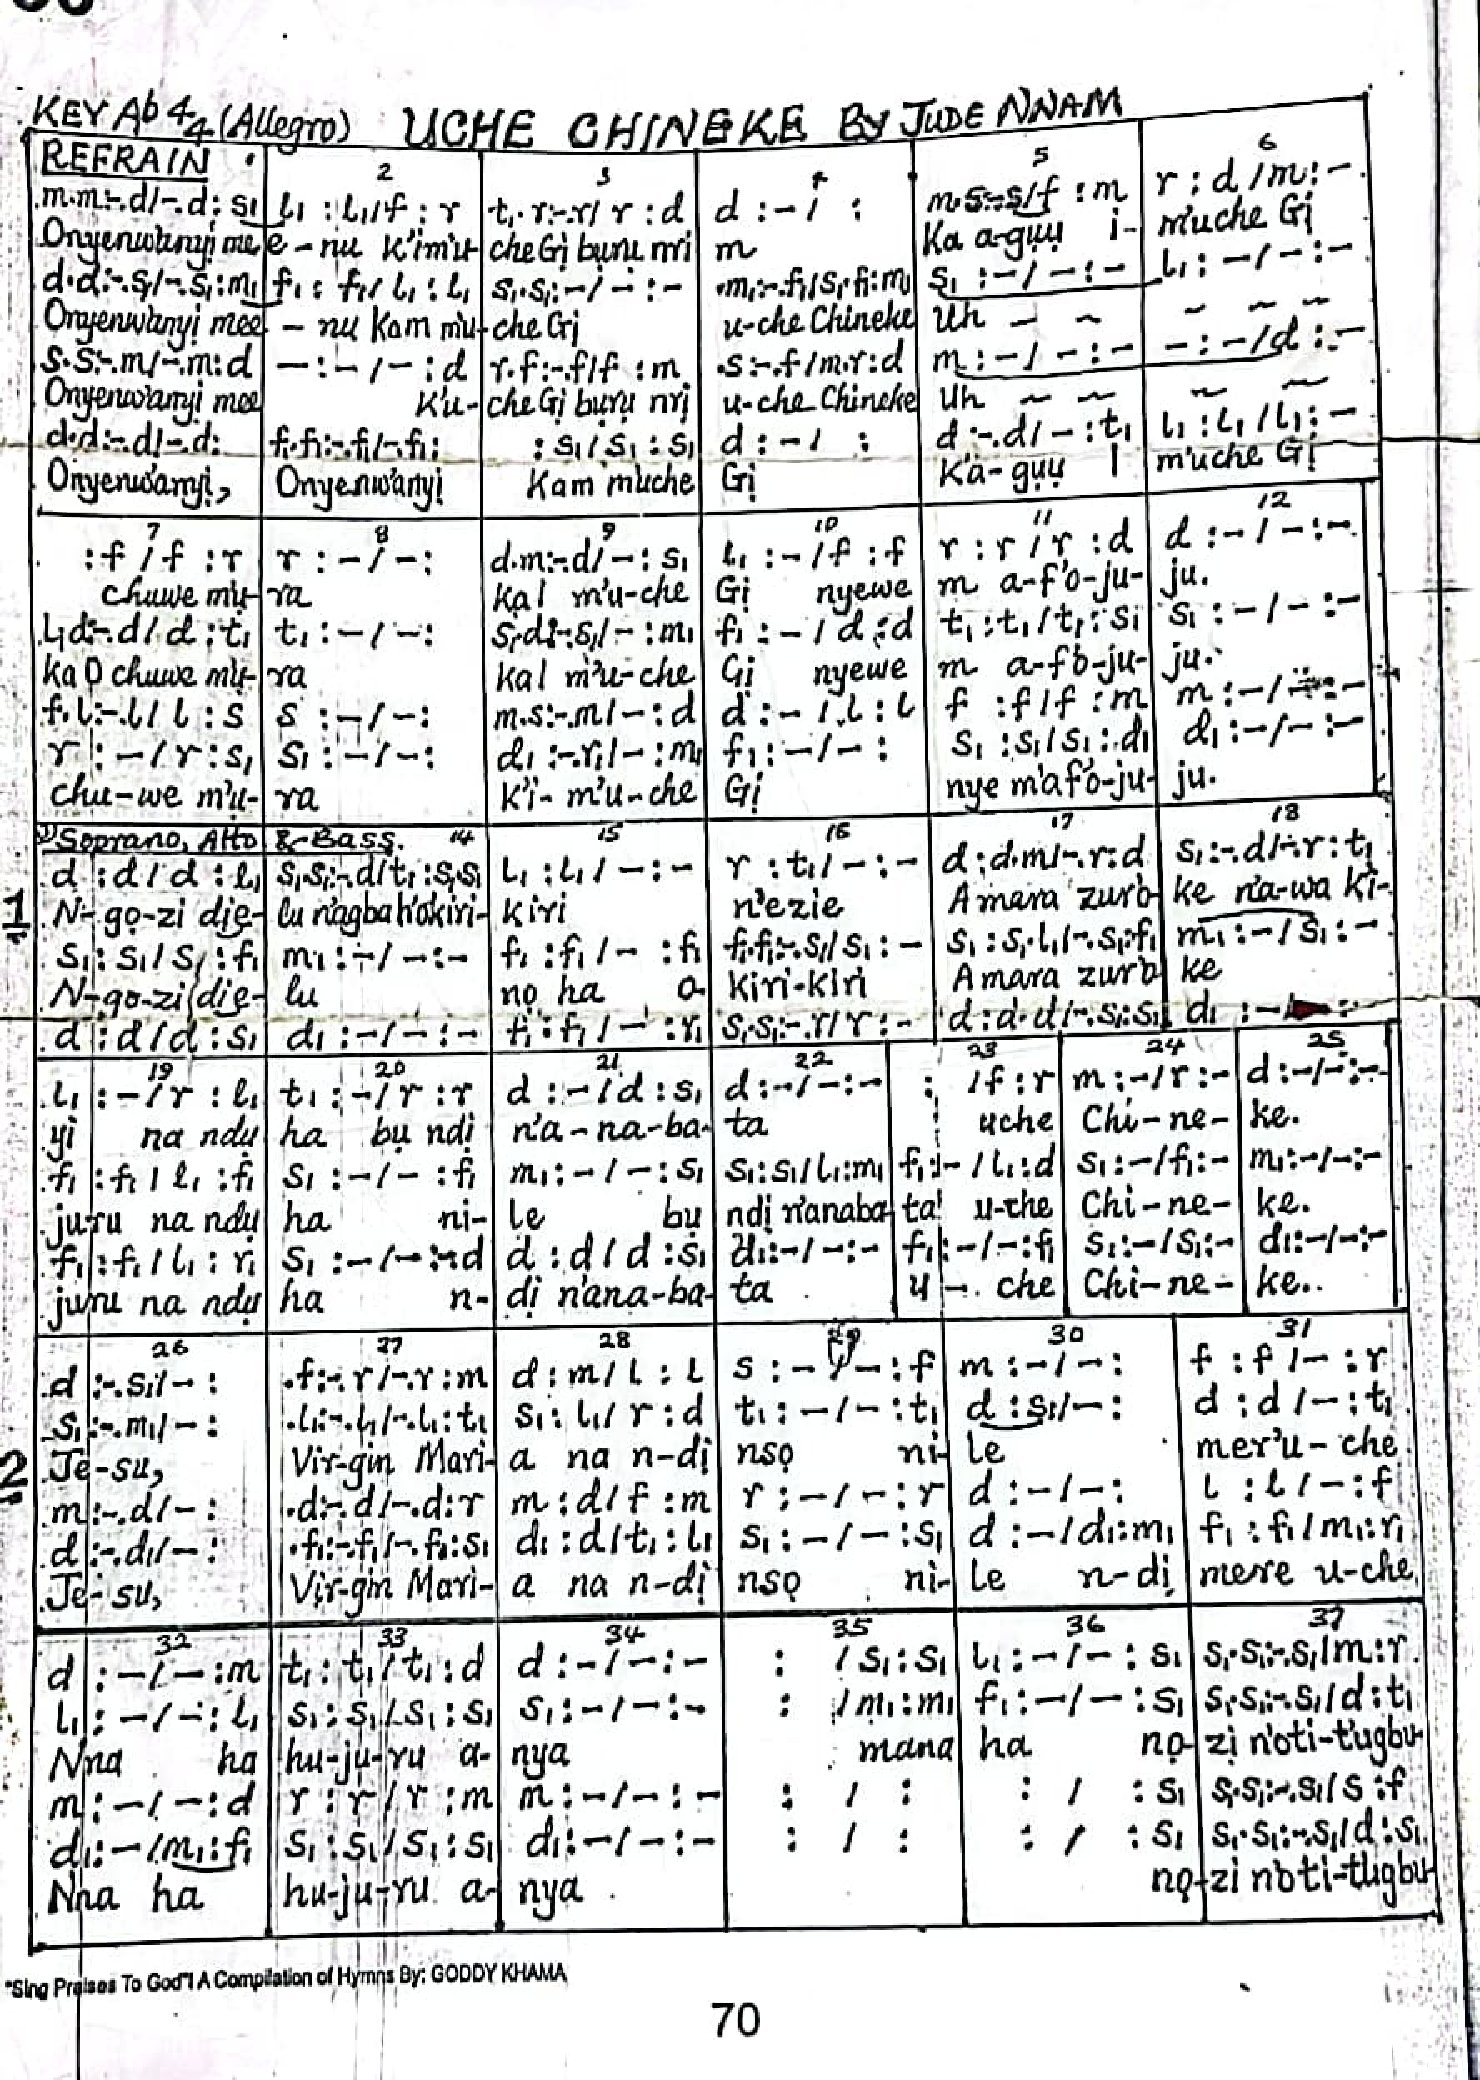 KEY Ab 4/4 (Allegro) UCHE CHINEKE BY JUDE NNAM
REFRAIN 2 3 4 5 6
m.m:-.d/-.d:s₁ l₁:l₁/f:r t₁.r:-.r/r:d d:-/ : m.s:-.s/f:m r:d/m:-
Onyenwanyi mee e-nu K'im'u- che Gị bụrụ nri m Ka a-gụụ i- m'uche Gị
d.d:-.s₁/-.s₁:m₁ f₁:f₁/l₁:l₁ s₁.s₁:-/-:- .m₁:-.f₁/s₁.f₁:m₁ s₁:-/-:- l₁:-/-:-
Onyenwanyi mee - nu Kam m'u- che Gị u-che Chineke Uh - ~ ~ ~ ~
s.s:-.m/-.m:d -:-/-:d r.f:-.f/f:m .s:-.f/m.r:d m:-/-:- -:-/d:-
Onyenwanyi mee K'u- che Gị bụrụ nri u-che Chineke Uh ~ ~ ~ ~
d.d:-.d/-.d: f₁.f₁:-.f₁/-.f₁: :s₁/s₁:s₁ d:-/ : d:-.d/-:t₁ l₁:l₁/l₁:-
Onyenwanyi, Onyenwanyi Kam m'uche Gị K'a-gụụ I m'uche Gị
7 8 9 10 11 12
:f/f:r r:-/-: d.m:-.d/-:s₁ l₁:-/f:f r:r/r:d d:-/-:-
chuwe mụ- ra ka I m'u-che Gị nyewe m a-f'o-ju- ju.
l₁.d:-.d/d:t₁ t₁:-/-: s₁.d:-.s₁/-:m₁ f₁:-/d:d t₁:t₁/t₁:s₁ s₁:-/-:-
ka O chuwe mụ- ra ka I m'u-che Gị nyewe m a-f'o-ju- ju.
f.l:-.l/l:s s:-/-: m.s:-.m/-:d d:-/l:l f:f/f:m m:-/-:-
r:-/r:s₁ s₁:-/-: d₁:-.r₁/-:m₁ f₁:-/-: s₁:s₁/s₁:d₁ d₁:-/-:-
chu-we m'ụ- ra K'i- m'u-che Gị nye m'afo-ju- ju.
1) Soprano, Alto & Bass. 14 15 16 17 18
d:d/d:l₁ s₁.s₁:-.d/t₁:s₁.s₁ l₁:l₁/-:- r:t₁/-:- d:d.m/-.r:d s₁:-.d/-.r:t₁
1 N-gọ-zi dịe- lu n'agbah'okiri- kiri n'ezie Amara zuro ke n'a-wa ki-
s₁:s₁/s₁:f₁ m₁:-/-:- f₁:f₁/-:f₁ f₁.f₁:-.s₁/s₁:- s₁:s₁.l₁/-.s₁:f₁ m₁:-/s₁:-
N-gọ-zi dịe- lu nọ ha o- kiri-kiri Amara zuro ke
d:d/d:s₁ d₁:-/-:- f₁:f₁/-:r₁ s₁.s₁:-.r/r:- d:d.d/-.s₁:s₁ d₁:-/ :-
19 20 21 22 23 24 25
l₁:-/r:l₁ t₁:-/r:r d:-/d:s₁ d:-/-:- : /f:r m:-/r:- d:-/-:-
yi na ndụ ha bụ ndị n'a-na-ba- ta uche Chi-ne- ke.
f₁:f₁/l₁:f₁ s₁:-/-:f₁ m₁:-/-:s₁ s₁:s₁/l₁:m₁ f₁:-/l₁:d s₁:-/f₁:- m₁:-/-:-
juru na ndụ ha ni- le bụ ndị n'anaba- ta u-che Chi-ne- ke.
f₁:f₁/l₁:r₁ s₁:-/-:-d d:d/d:s₁ d₁:-/-:- f₁:-/-:f₁ s₁:-/s₁:- d₁:-/-:-
juru na ndụ ha n- dị n'ana-ba- ta u- che Chi-ne- ke..
26 27 28 29 30 31
d:-.s₁/-: .f:-.r/-.r:m d:m/l:l s:-/-:f m:-/-: f:f/-:r
s₁:-.m₁/-: .l₁:-.l₁/-.l₁:t₁ s₁:l₁/r:d t₁:-/-:t₁ d:s₁/-: d:d/-:t₁
2 Je-su, Vir-gin Mari- a na n-dị nsọ ni- le mer'u-che
m:-.d/-: .d:-.d/-.d:r m:d/f:m r:-/-:r d:-/-: l:l/-:f
d:-.d₁/-: .f₁:-.f₁/-.f₁:s₁ d₁:d/t₁:l₁ s₁:-/-:s₁ d:-/d₁:m₁ f₁:f₁/m₁:r₁
Je-su, Vir-gin Mari- a na n-dị nsọ ni- le n-dị mere u-che
32 33 34 35 36 37
d:-/-:m t₁:t₁/t₁:d d:-/-:- : /s₁:s₁ l₁:-/-:s₁ s₁.s₁:-.s₁/m:r
l₁:-/-:l₁ s₁:s₁/s₁:s₁ s₁:-/-:- : /m₁:m₁ f₁:-/-:s₁ s₁.s₁:-.s₁/d:t₁
Nna ha hu-ju-ru a- nya mana ha nọ- zị n'oti-t'ugbu-
m:-/-:d r:r/r:m m:-/-:- : / : : / :s₁ s₁.s₁:-.s₁/s:f
d₁:-/m₁:f₁ s₁:s₁/s₁:s₁ d₁:-/-:- : / : : / :s₁ s₁.s₁:-.s₁/d:s₁
Nna ha hu-ju-ru a- nya nọ- zi n'oti-t'ugbu-
"Sing Praises To God"! A Compilation of Hymns By: GODDY KHAMA
70